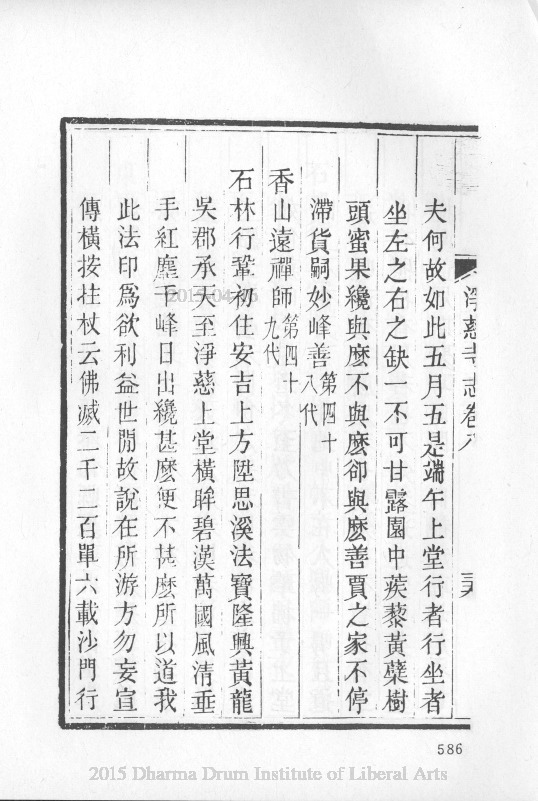 淨慈寺志卷八
夫何故如此五月五是端午上堂行者行坐者
坐左之右之缺一不可甘露園中蒺藜黃蘗樹
頭蜜果纔與麼不與麼卻與麼善賈之家不停
滯貨嗣妙峰善第四十八代
香山遠禪師第四十九代
石林行鞏初住安吉上方陞思溪法寶隆興黃龍
吳郡承天至淨慈上堂橫眸碧漢萬國風清垂
手紅塵千峰日出纔甚麼便不甚麼所以道我
此法印爲欲利益世閒故說在所游方勿妄宣
傳橫按拄杖云佛滅二千二百單六載沙門行
586
2015 Dharma Drum Institute of Liberal Arts